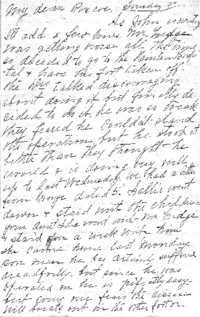 My dear Roscoe, Sunday 2"
As John
I'll add a few lines. Mr. Fudge
was getting worse all the time,
so decided to go to the Hospi-
tal & have his foot taken off.
the Drs. talked discouraging
about doing it but finally de-
cided to do it. he was so weak
they feared he couldn't stand
the operation, but he stood it
better than they thought he
would & is doing very well
up to last Wednesday. We had a letter
from George dated 5. Sallie went
down & staid with the children
your Aunt Ida went with Mr. Fudge
& staid for a week with him
she came home last Monday.
poor man he has certainly suffered
dreadfully. but since he was
operated on he is perfectly easy.
but my fear the disease
will break out on the other foot.